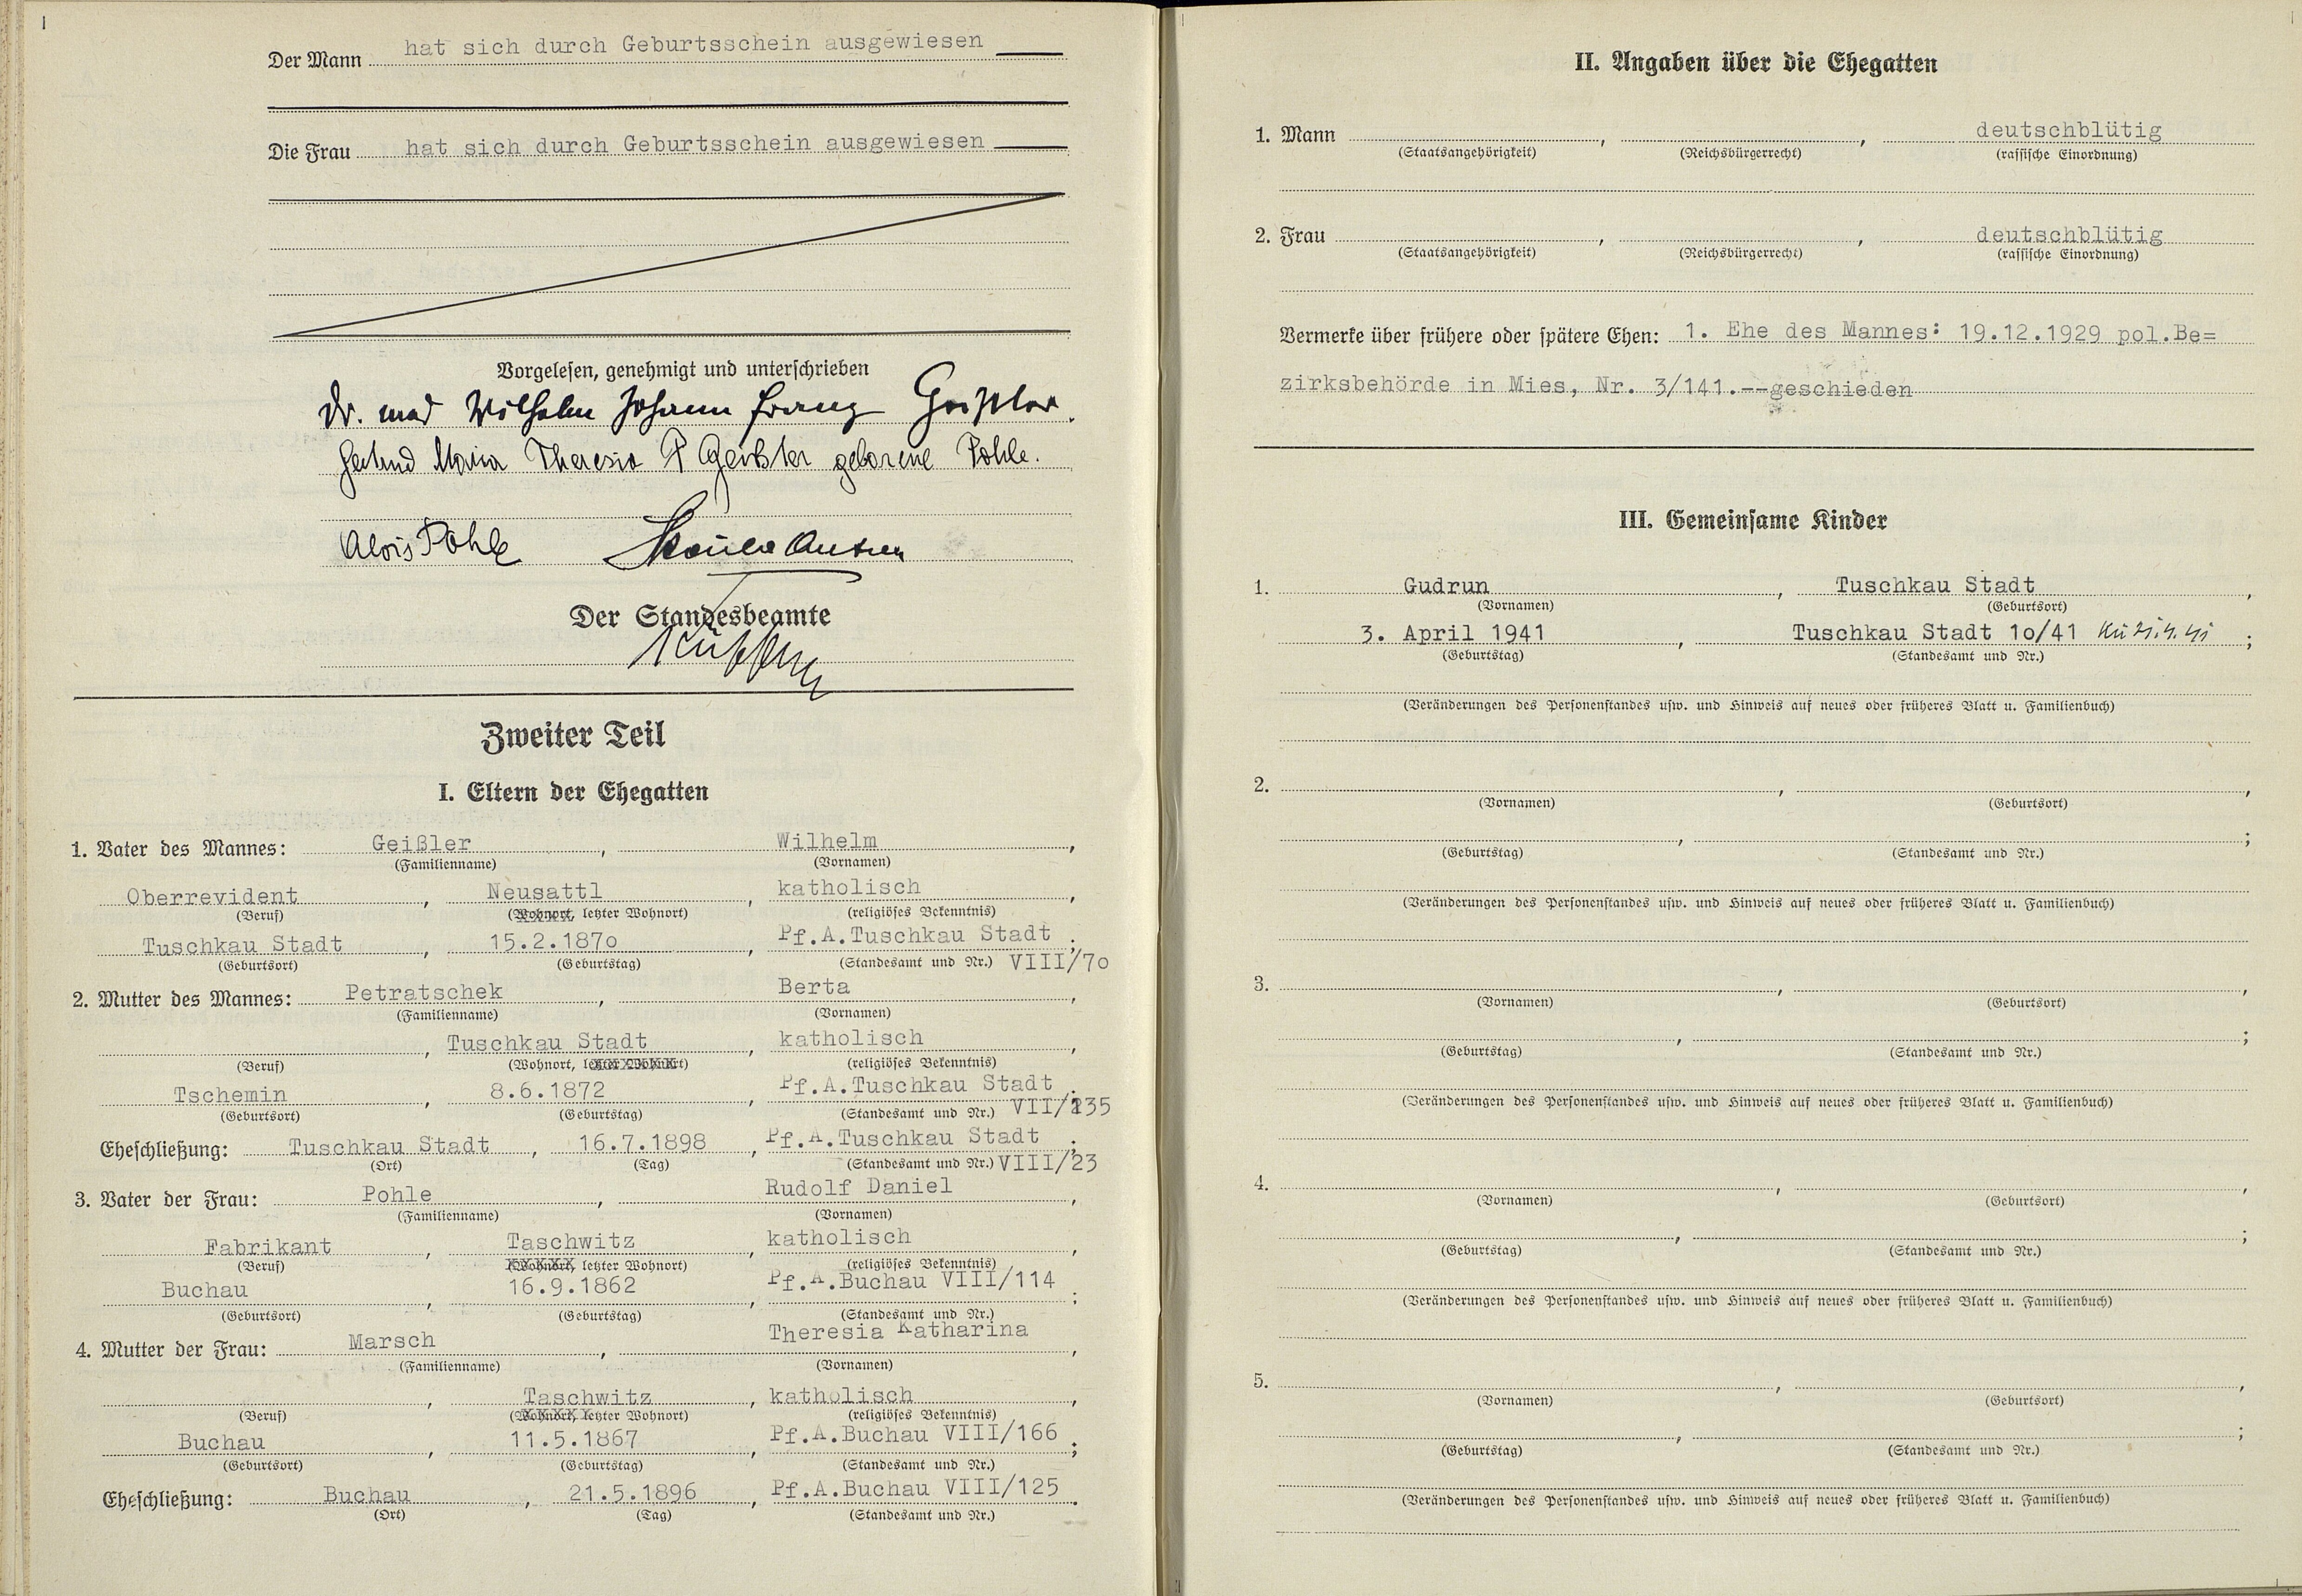 Der Mann hat sich durch Geburtsschein ausgewiesen
Die Frau hat sich durch Geburtsschein ausgewiesen
Vorgelesen, genehmigt und unterschrieben
Dr. med Wilhelm Johann Franz Geißler.
Gertrud Maria Theresia P Geißler geborene Pohle.
Alois Pohle
Der Standesbeamte
Zweiter Teil
I. Eltern der Ehegatten
1. Vater des Mannes: Geißler, Wilhelm,
(Familienname) (Vornamen)
Oberrevident, Neusattl, katholisch,
(Beruf) (Wohnort, letzter Wohnort) (religiöses Bekenntnis)
Tuschkau Stadt, 15.2.1870, Pf.A.Tuschkau Stadt;
(Geburtsort) (Geburtstag) (Standesamt und Nr.) VIII/70
2. Mutter des Mannes: Petratschek, Berta,
(Familienname) (Vornamen)
, Tuschkau Stadt, katholisch,
(Beruf) (Wohnort, letzter Wohnort) (religiöses Bekenntnis)
Tschemin, 8.6.1872, Pf.A.Tuschkau Stadt;
(Geburtsort) (Geburtstag) (Standesamt und Nr.)
Eheschließung: Tuschkau Stadt, 16.7.1898, Pf.A.Tuschkau Stadt;
(Ort) (Tag) (Standesamt und Nr.) VIII/23
3. Vater der Frau: Pohle, Rudolf Daniel,
(Familienname) (Vornamen)
Fabrikant, Taschwitz, katholisch,
(Beruf) (Wohnort, letzter Wohnort) (religiöses Bekenntnis)
Buchau, 16.9.1862, Pf.A.Buchau VIII/114;
(Geburtsort) (Geburtstag) (Standesamt und Nr.)
4. Mutter der Frau: Marsch, Theresia Katharina,
(Familienname) (Vornamen)
, Taschwitz, katholisch,
(Beruf) (Wohnort, letzter Wohnort) (religiöses Bekenntnis)
Buchau, 11.5.1867, Pf.A.Buchau VIII/166;
(Geburtsort) (Geburtstag) (Standesamt und Nr.)
Eheschließung: Buchau, 21.5.1896, Pf.A.Buchau VIII/125.
(Ort) (Tag) (Standesamt und Nr.)
II. Angaben über die Ehegatten
1. Mann , , deutschblütig
(Staatsangehörigkeit) (Reichsbürgerrecht) (rassische Einordnung)
2. Frau , , deutschblütig
(Staatsangehörigkeit) (Reichsbürgerrecht) (rassische Einordnung)
Vermerke über frühere oder spätere Ehen: 1. Ehe des Mannes: 19.12.1929 pol.Be=
zirksbehörde in Mies, Nr. 3/141.--geschieden
III. Gemeinsame Kinder
1. Gudrun, Tuschkau Stadt,
(Vornamen) (Geburtsort)
3. April 1941, Tuschkau Stadt 10/41 ;
(Geburtstag) (Standesamt und Nr.)
(Veränderungen des Personenstandes usw. und Hinweis auf neues oder früheres Blatt u. Familienbuch)
2. , ,
(Vornamen) (Geburtsort)
, ;
(Geburtstag) (Standesamt und Nr.)
(Veränderungen des Personenstandes usw. und Hinweis auf neues oder früheres Blatt u. Familienbuch)
3. , ,
(Vornamen) (Geburtsort)
, ;
(Geburtstag) (Standesamt und Nr.)
(Veränderungen des Personenstandes usw. und Hinweis auf neues oder früheres Blatt u. Familienbuch)
4. , ,
(Vornamen) (Geburtsort)
, ;
(Geburtstag) (Standesamt und Nr.)
(Veränderungen des Personenstandes usw. und Hinweis auf neues oder früheres Blatt u. Familienbuch)
5. , ,
(Vornamen) (Geburtsort)
, ;
(Geburtstag) (Standesamt und Nr.)
(Veränderungen des Personenstandes usw. und Hinweis auf neues oder früheres Blatt u. Familienbuch)